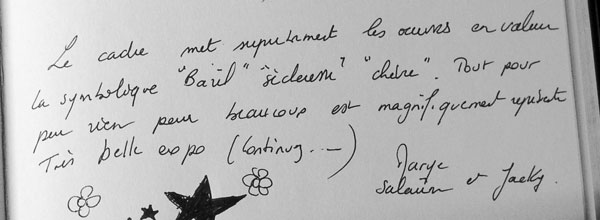 Le cadre met superbement les œuvres en valeur
la symbolique "Baril" "chère". Tout pour
peu rien pour beaucoup est magnifiquement représenté
Très belle expo (Continuez...)
Maryc
Salaün et Jacky.